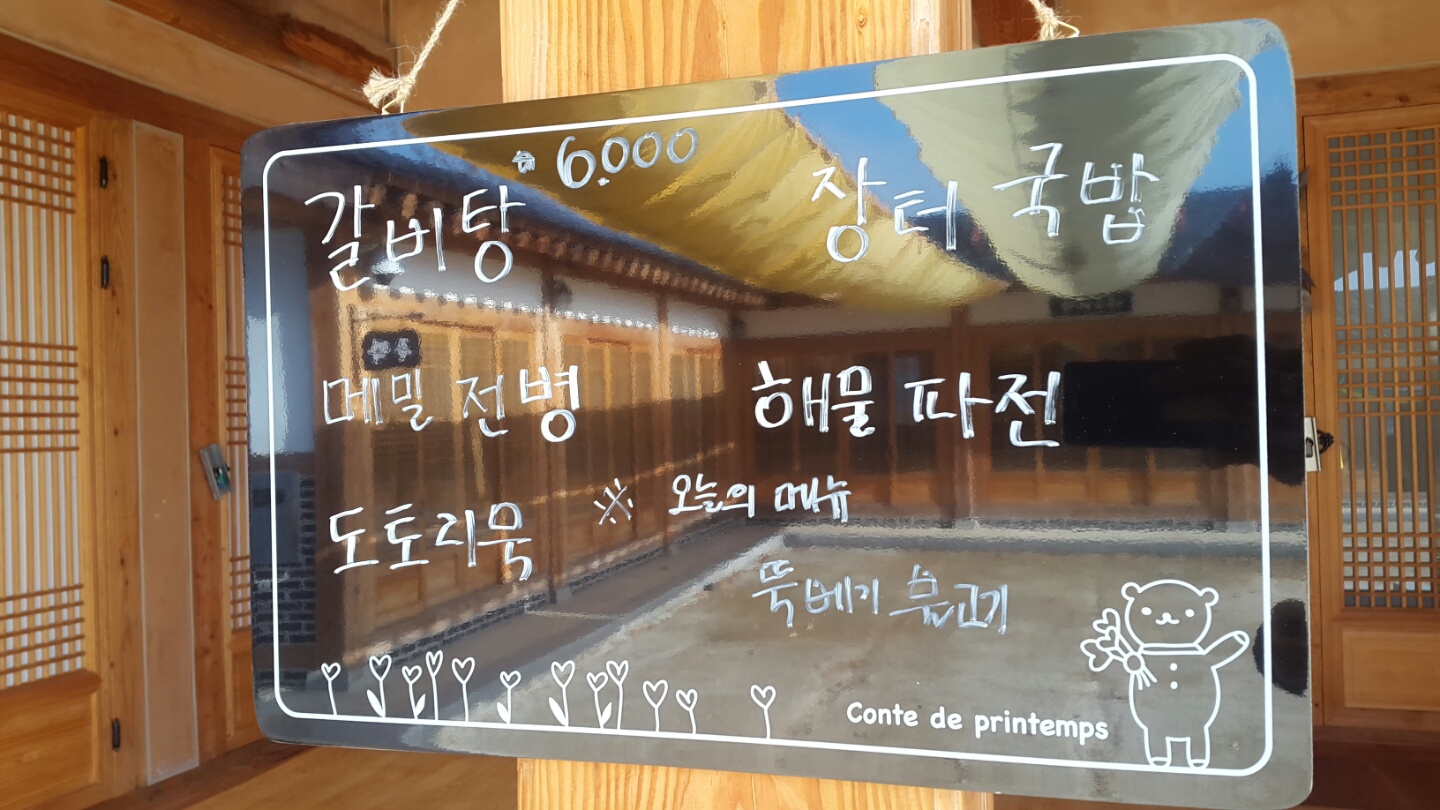 6.000
갈비탕 장터 국밥
메밀 전병 해물 파전
※ 오늘의 메뉴
도토리묵
뚝베기 불고기
Conte de printemps